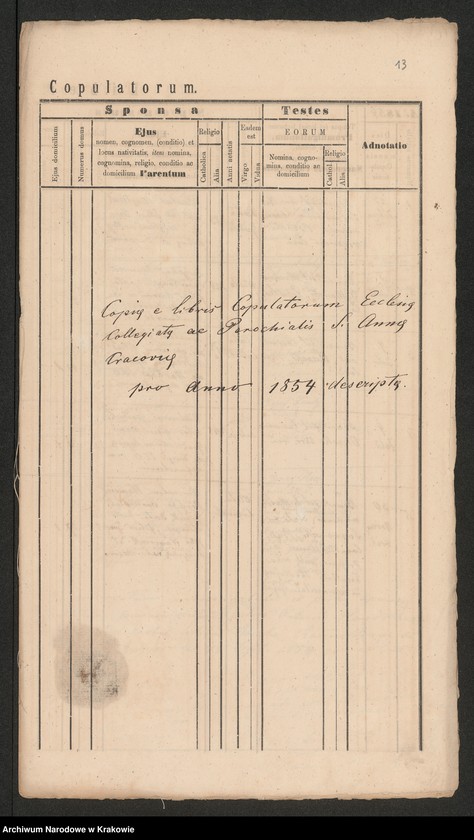 13
Copulatorum.
Sponsa
Testes
Ejus domicilium
Numerus domus
Ejus
nomen, cognomen, (conditio) et
locus nativitatis, item nomina,
cognomina, religio, conditio ac
domicilium Parentum
Religio
Catholica
Alia
Anni aetatis
Eadem
est
Virgo
Vidua
EORUM
Nomina, cogno-
mina, conditio ac
domicilium
Religio
Cathol.
Alia
Adnotatio
Copia e libris Copulatorum Ecclesię
Collegiatę ac Parochialis S. Annę
Cracovię
pro Anno 1854 descripta.
Archiwum Narodowe w Krakowie